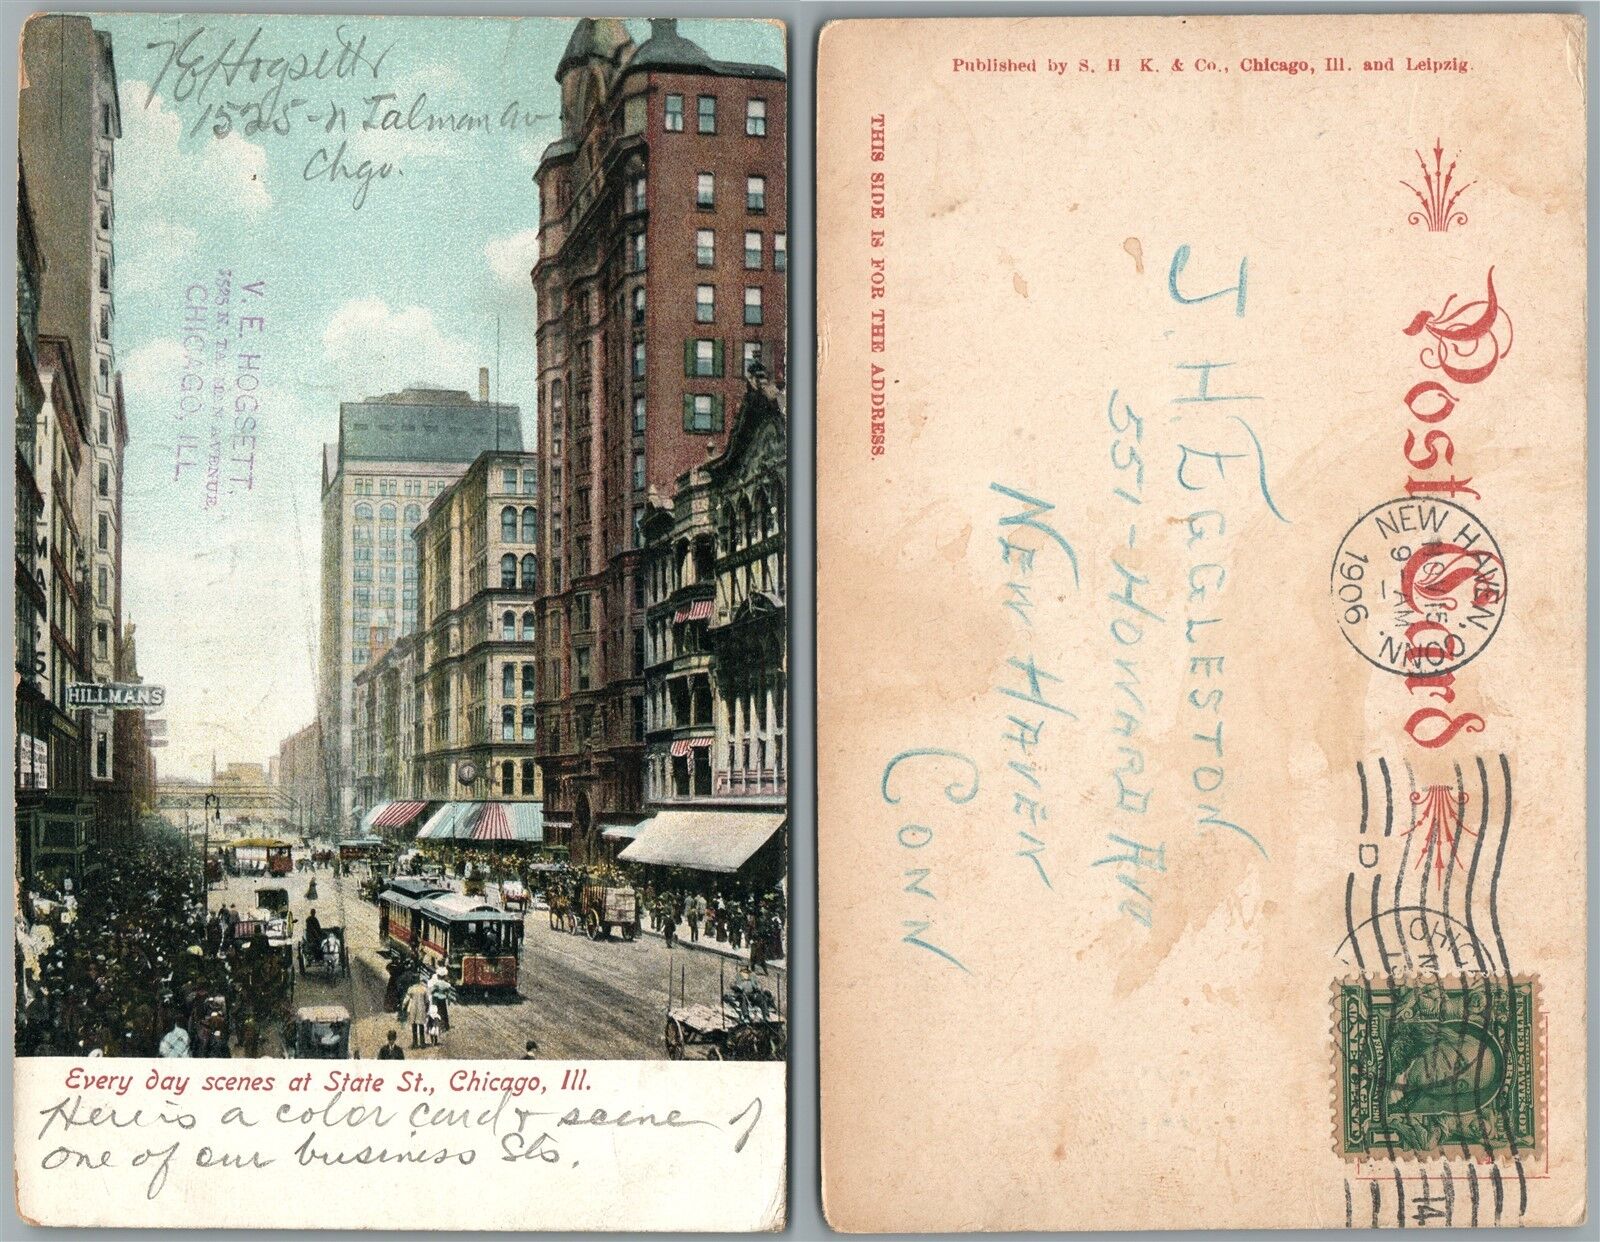 V E Hogsett
1525 - N Talman av
Chgo.
V. E. HOGSETT,
1525 N. TALMAN AVENUE,
CHICAGO, ILL.
HILLMAN'S
HILLMANS
Every day scenes at State St., Chicago, Ill.
Here is a color card & scene of
one of our business Sts.
Published by S. H K. & Co., Chicago, Ill. and Leipzig.
THIS SIDE IS FOR THE ADDRESS.
Post Card
J. H. EGGLESTON
551 - HOWARD AVE
NEW HAVEN
CONN
NEW HAVEN, CONN.
NOV 15
9 - AM
1906
D
CHICA
14